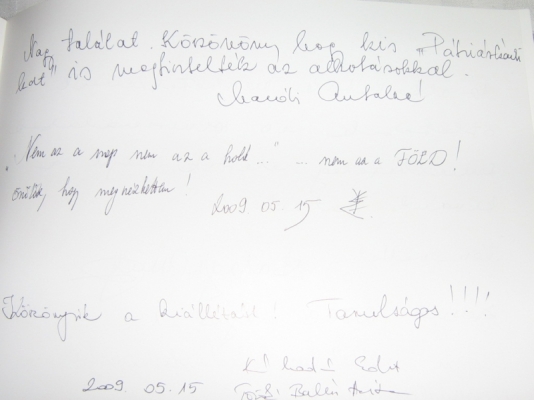 Nagy találat. Köszönöm, hogy kis
is megtisztelték az alkotásokkal.
Antalné
"Nem az a nap nem az a hold..." ... nem az a FÖLD!
örülök, hogy megnézhettem!
2009 05. 15
Köszönjük a kiállítást! Tanulságos!!!!
2009. 05. 15